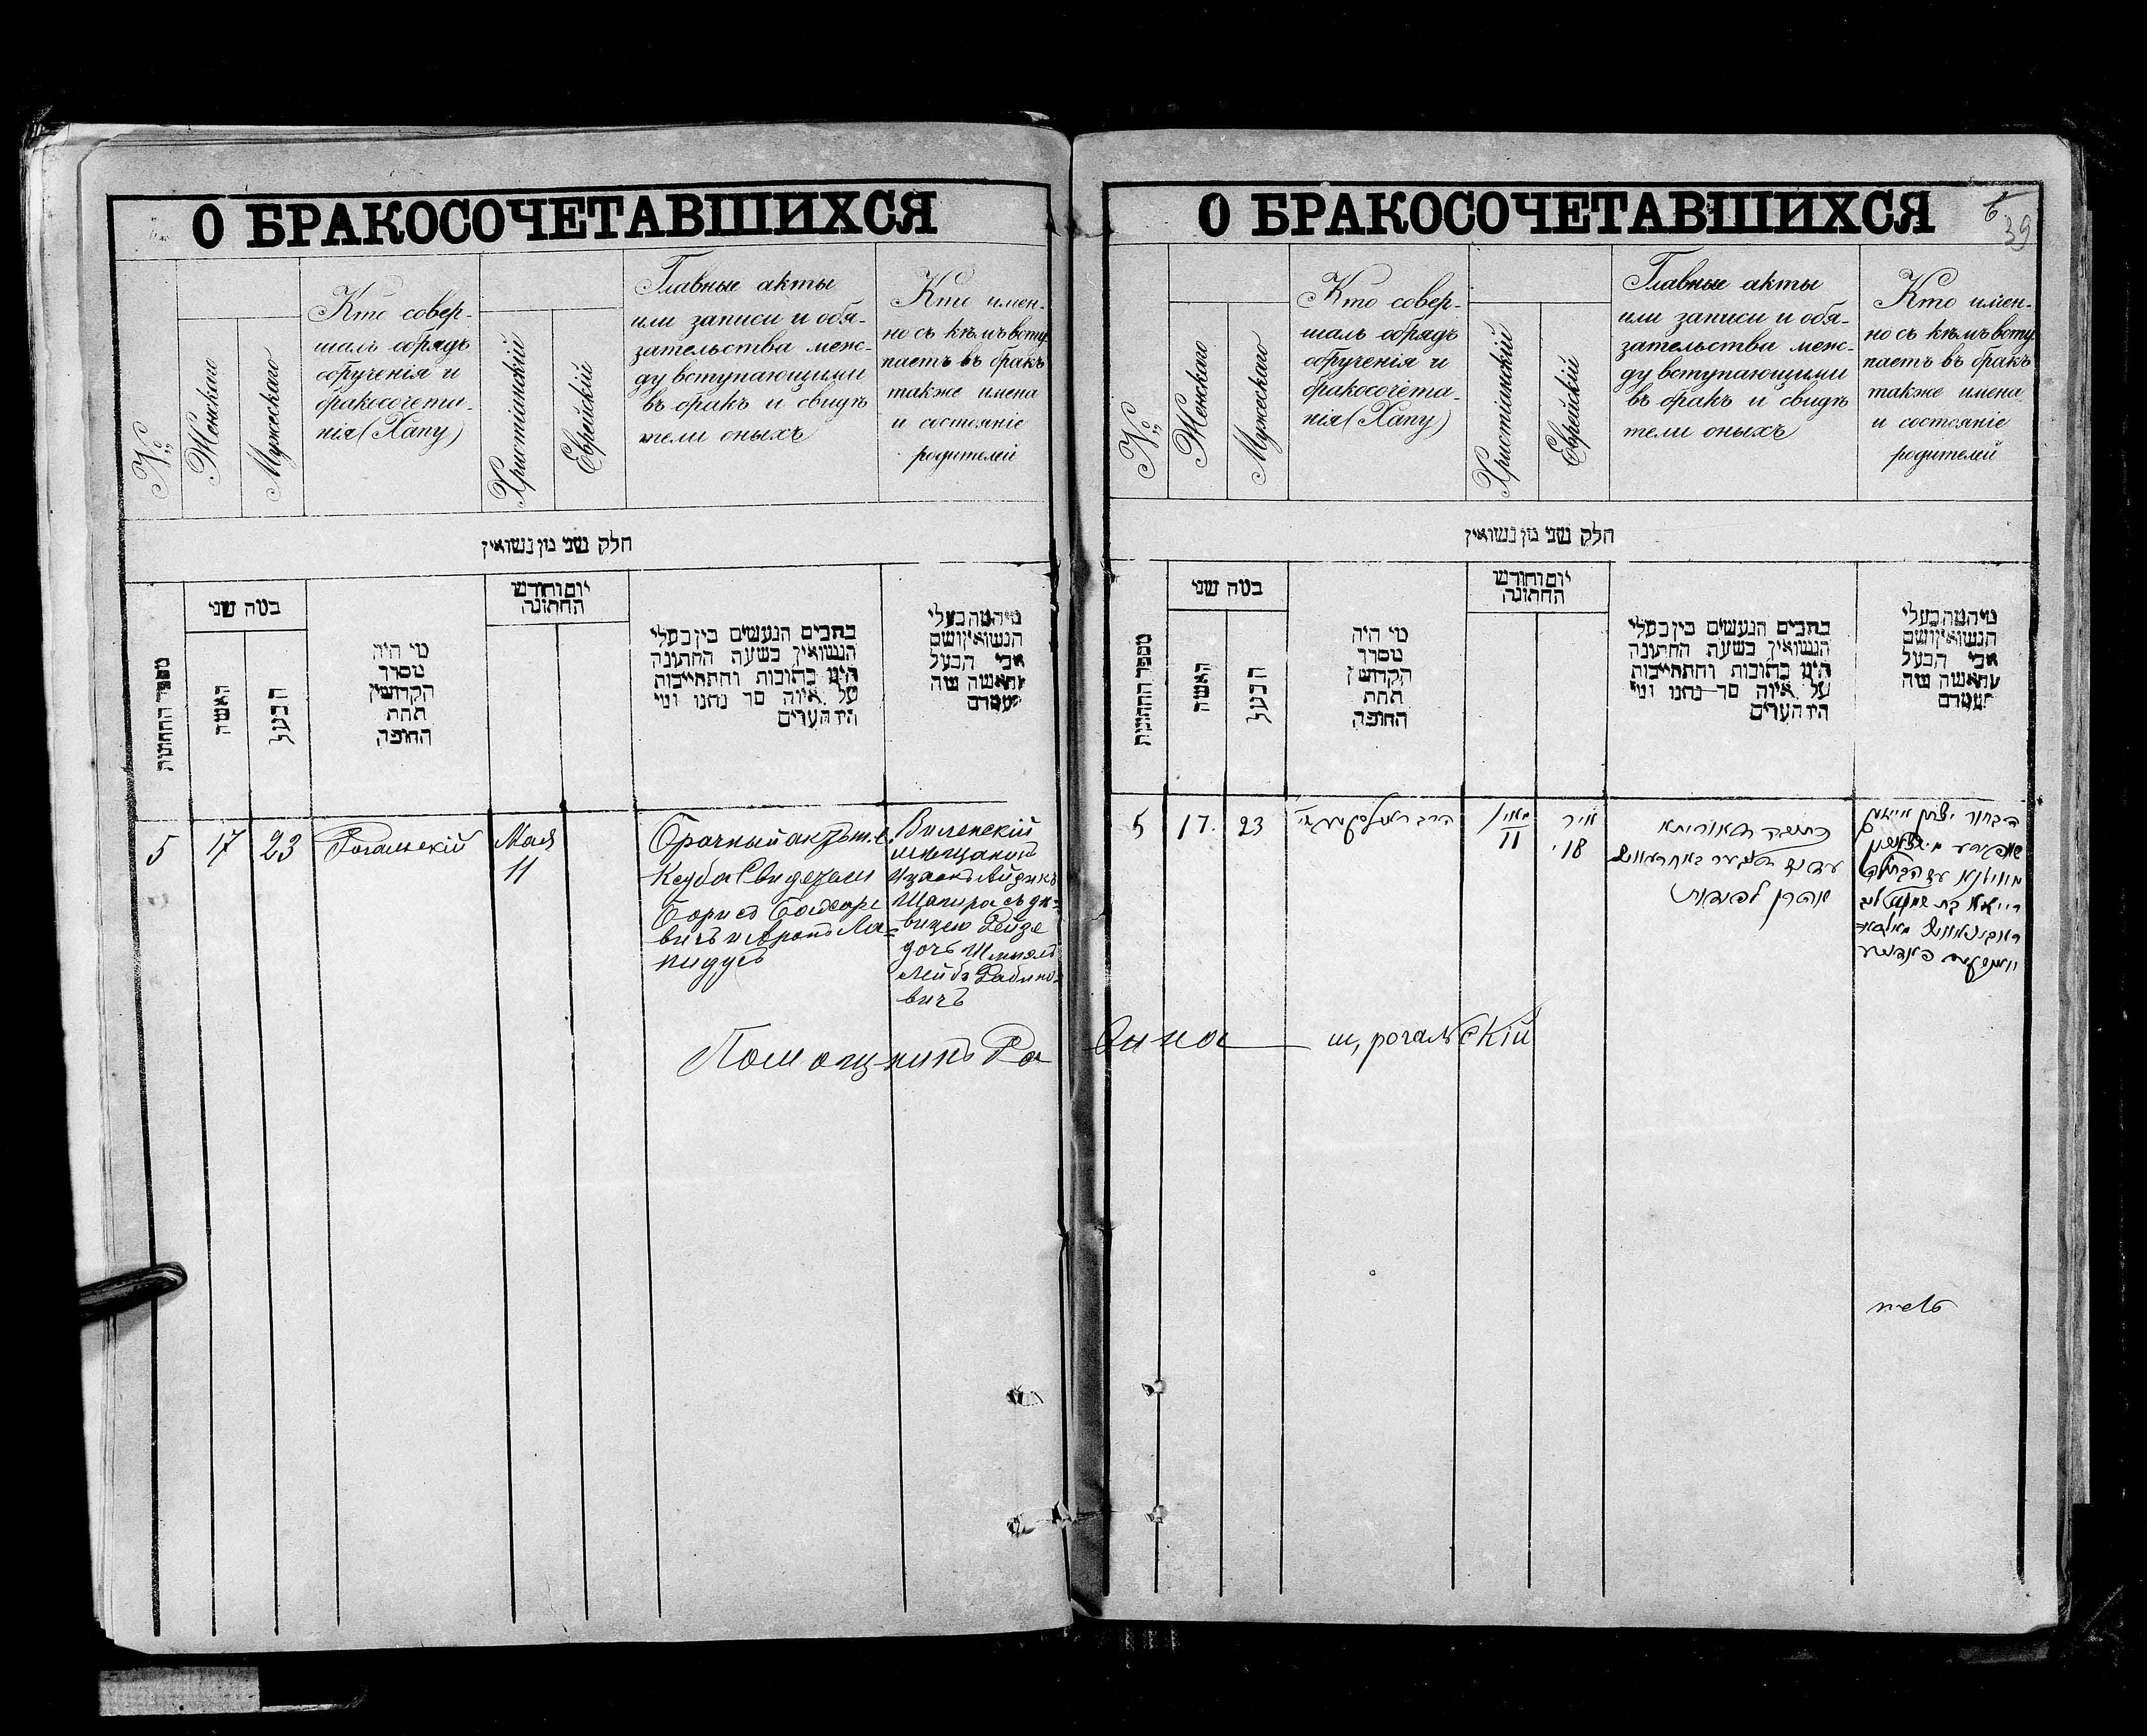 О БРАКОСОЧЕТАВШИХСЯ
№
Женскаго
Мужескаго
Кто совер-
шалъ обрядъ
обрученія и
бракосочета-
нія (Хапу)
Христіанскій
Еврейскій
Главные акты
или записи и обя-
зательства меж-
ду вступающими
въ бракъ и свидѣ
тели оныхъ
Кто имен-
но съ кѣмъ всту
паетъ въ бракъ
также имена
и состояніе
родителей
חלק שני מן נשואין
מספר החתונות
כמה שני
האשה
הבעל
מי היה
מסדר
הקדושין
תחת
החופה
יום וחודש
החתונה
כתבים הנעשים בין בעלי
הנשואין בשעת החתונה
היינו כתובות והתחייבות
על איזה סך נתנו ומי
היו העדים
מי המה בעלי
הנשואין ושם
אבי הבעל
והאשה
5
17
23
Рогальскій
Мая
11
Брачный актъ т.е.
Кеуба Свидетели
Борисъ
вичъ и Аронъ Ла-
пидусъ
Виленскій
мѣщанинъ
Изаакъ Айзикъ
Шапиро съ дѣ-
вицею Рейзе
дочь Шмуелъ
Лейба Рабино-
вичъ
Помощникъ Ра
О БРАКОСОЧЕТАВШИХСЯ
6
39
№
Женскаго
Мужескаго
Кто совер-
шалъ обрядъ
обрученія и
бракосочета-
нія (Хапу)
Христіанскій
Еврейскій
Главные акты
или записи и обя-
зательства меж-
ду вступающими
въ бракъ и свидѣ
тели оныхъ
Кто имен-
но съ кѣмъ всту
паетъ въ бракъ
также имена
и состояніе
родителей
חלק שני מן נשואין
מספר החתונות
כמה שני
האשה
הבעל
מי היה
מסדר
הקדושין
תחת
החופה
יום וחודש
החתונה
כתבים הנעשים בין בעלי
הנשואין בשעת החתונה
היינו כתובות והתחייבות
על איזה סך נתנו ומי
היו העדים
מי המה בעלי
הנשואין ושם
אבי הבעל
והאשה
5
17.
23
הרב
מאי
11
אייר
18
כתובה דאורייתא
אהרן לפידות
הבחור יצחק אייזיק
שאפירא
מווילנא עם הבתולה
רייזא בת שמואל ליב
ראבינאוויץ
вина ш, рогальскій